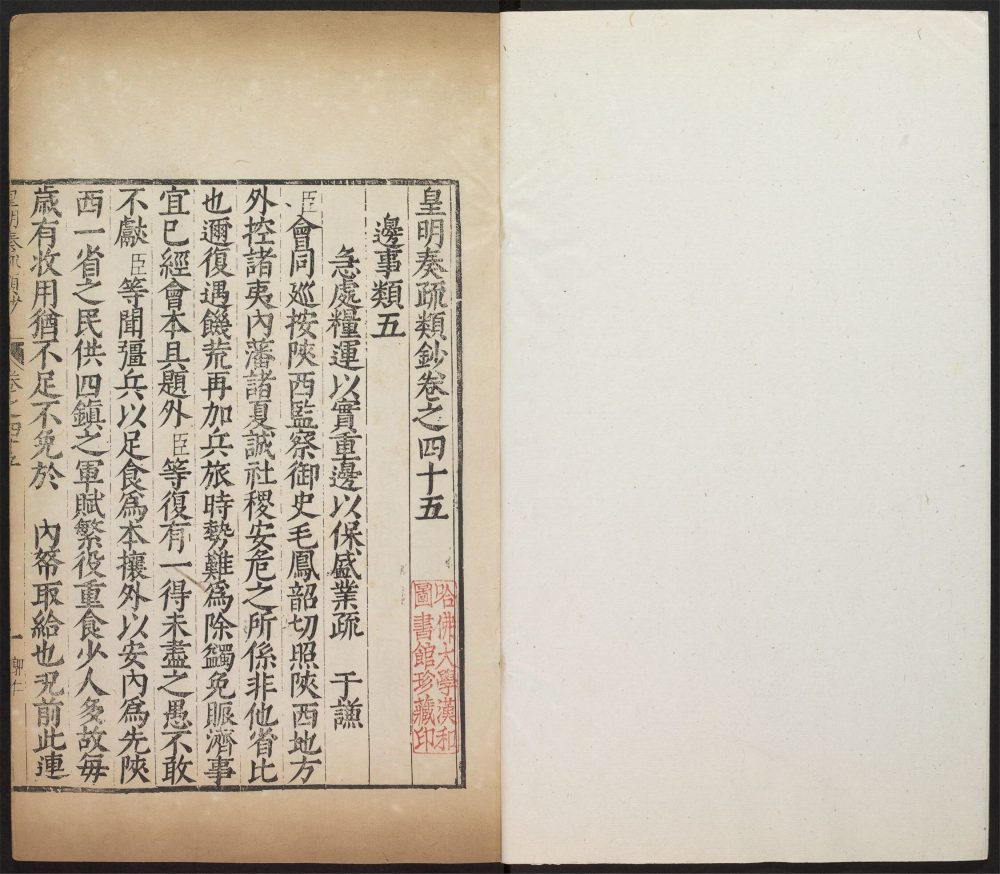 皇明奏疏類鈔卷之四十五
哈佛大學漢和
圖書館珍藏印
邊事類五
急處糧運以實重邊以保盛業疏 于謙
臣會同廵按陝西監察御史毛鳳韶切照陝西地方
外控諸夷內藩諸夏誠社稷安危之所係非他省比
也邇復遇饑荒再加兵旅時勢難爲除蠲免賑濟事
宜已經會本具題外臣等復有一得未盡之愚不敢
不獻臣等聞彊兵以足食爲本攘外以安內爲先陝
西一省之民供四鎮之軍賦繁役重食少人多故每
歲有收用猶不足不免於 內帑取給也况前此連